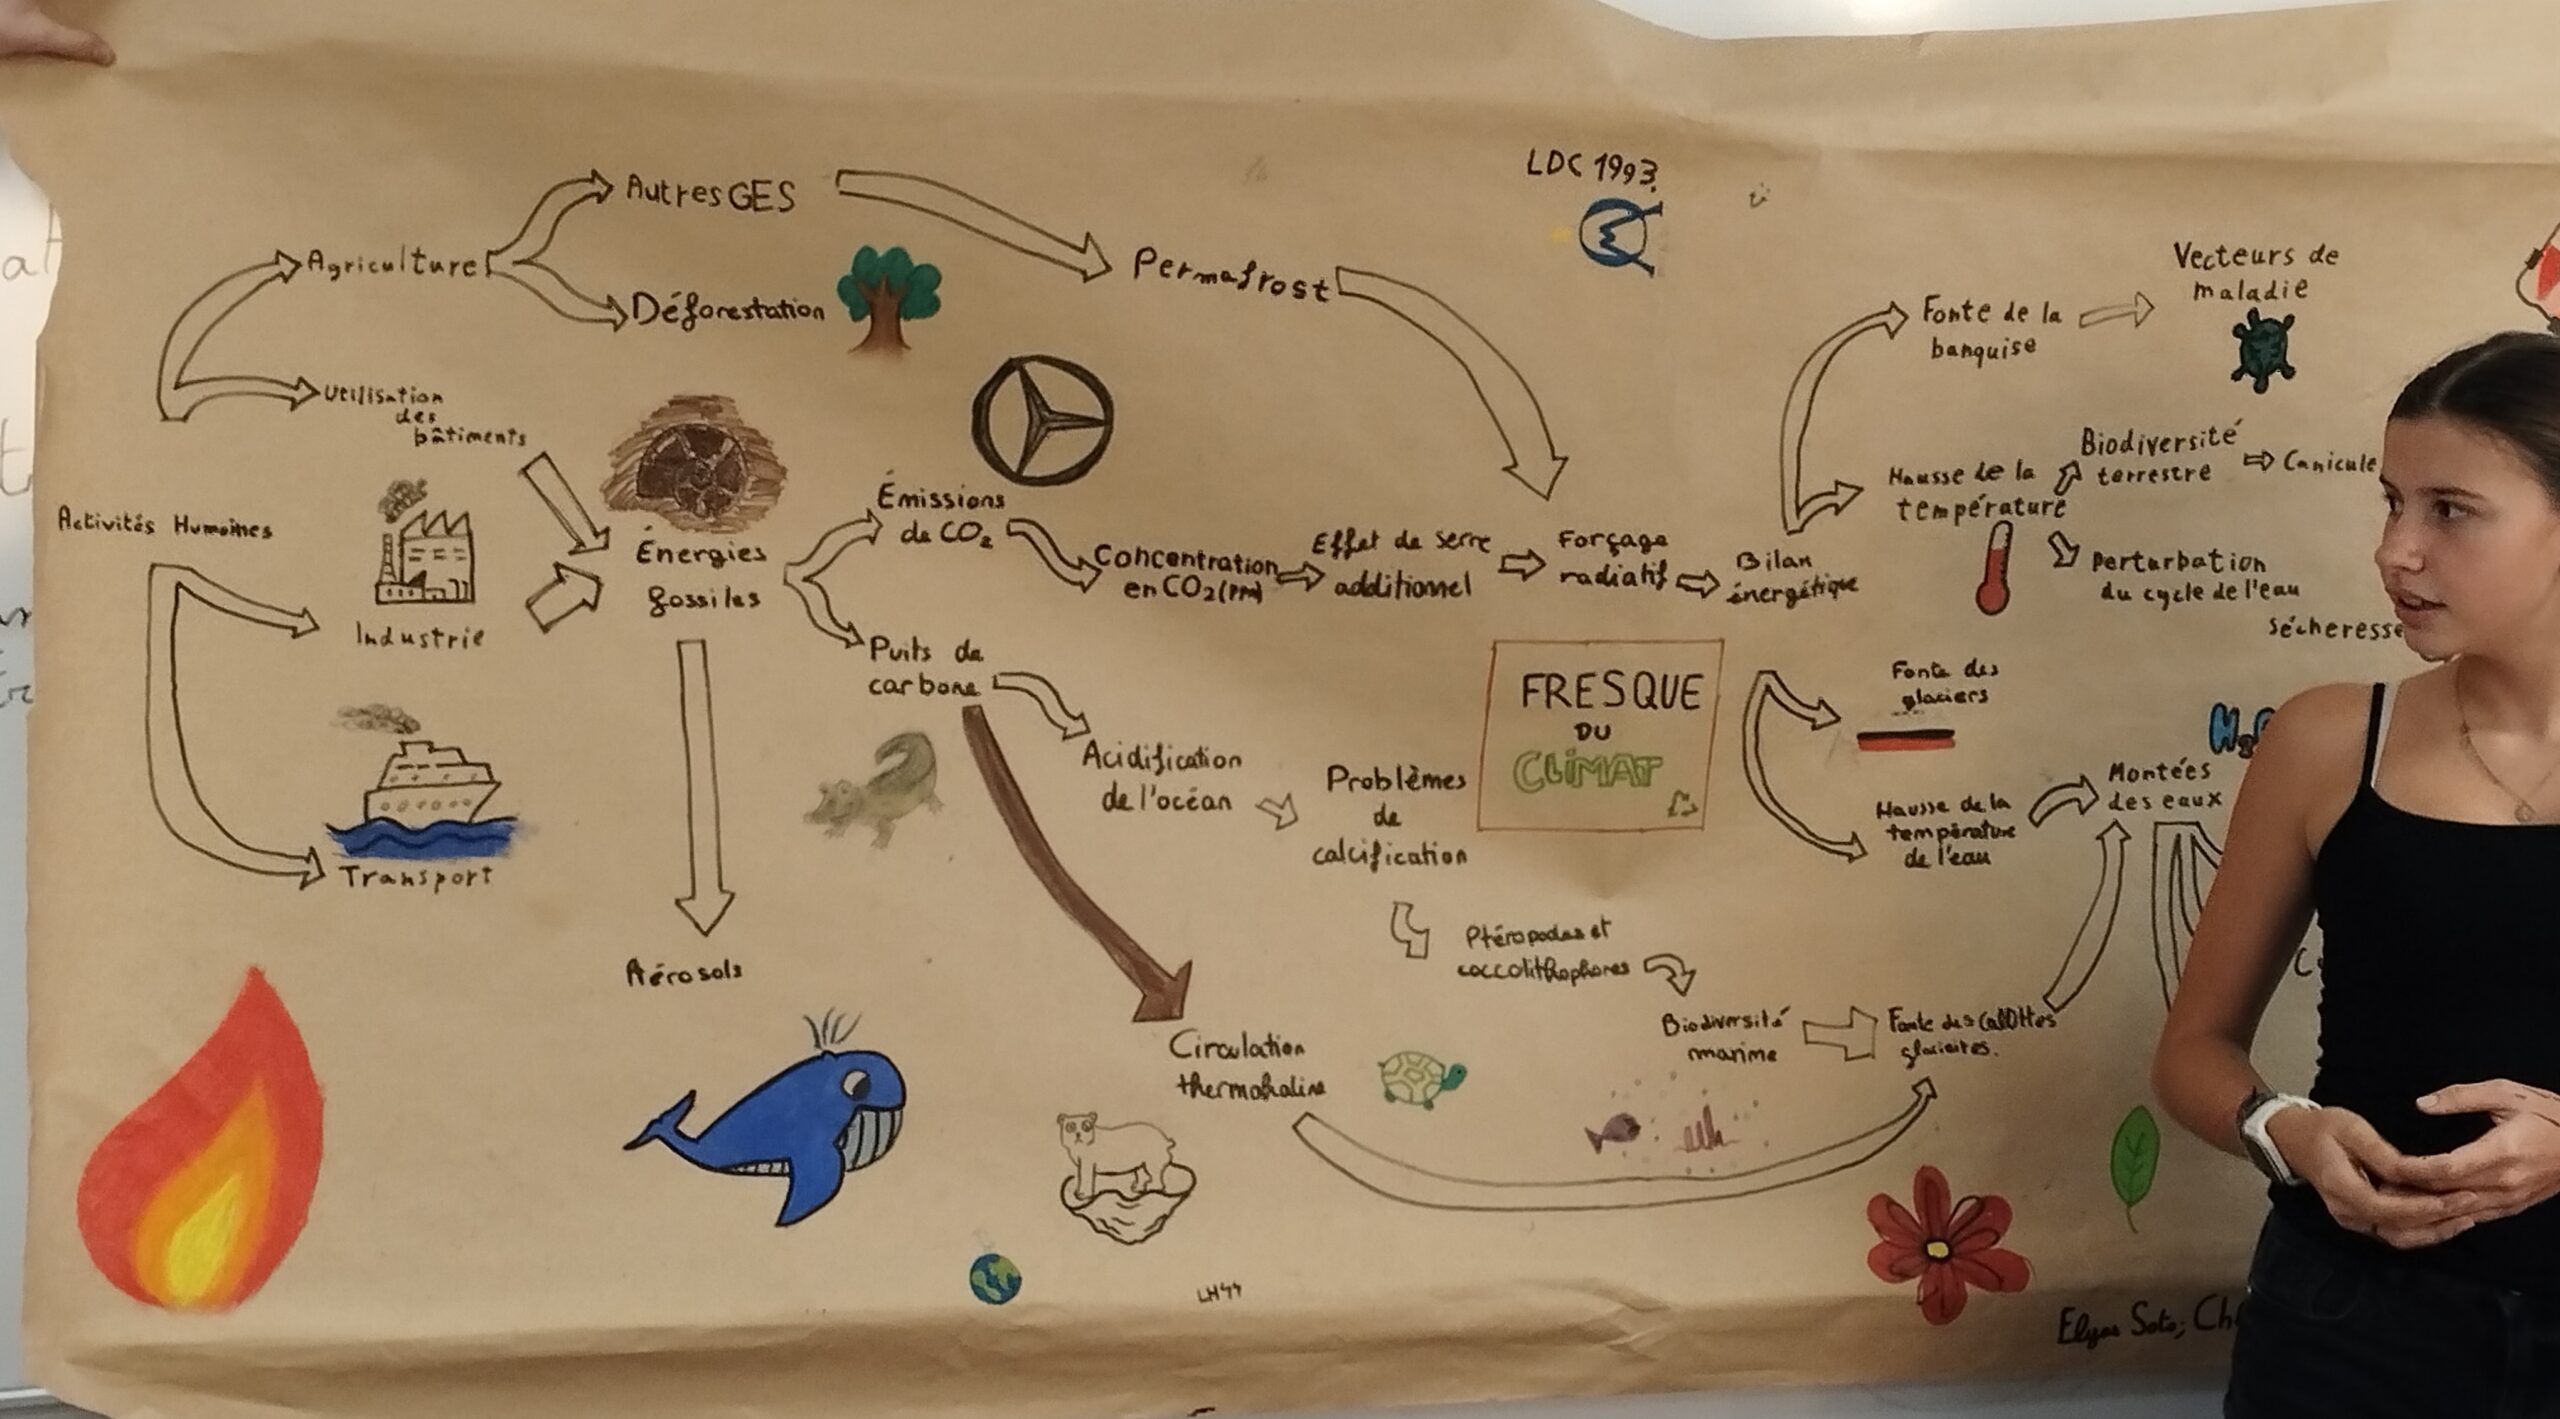 LDC 1993.
Autres GES
Agriculture
Déforestation
Permafrost
Utilisation
des
bâtiments
Activités Humaines
Industrie
Transport
Énergies
fossiles
Aérosols
Émissions
de CO₂
Concentration
en CO₂ (PPM)
Effet de serre
additionnel
Forçage
radiatif
Bilan
énergétique
Puits de
carbone
Acidification
de l'océan
Problèmes
de
calcification
Ptéropodes et
coccolithophores
Biodiversité
marine
Circulation
thermohaline
Fonte des calottes
FRESQUE
DU
CLIMAT
Fonte de la
banquise
Vecteurs de
maladie
Hausse de la
température
Biodiversité
terrestre
Canicule
Perturbation
du cycle de l'eau
sécheresse
Fonte des
glaciers
Hausse de la
température
de l'eau
Montées
des eaux
LH44
Elyas Soto;